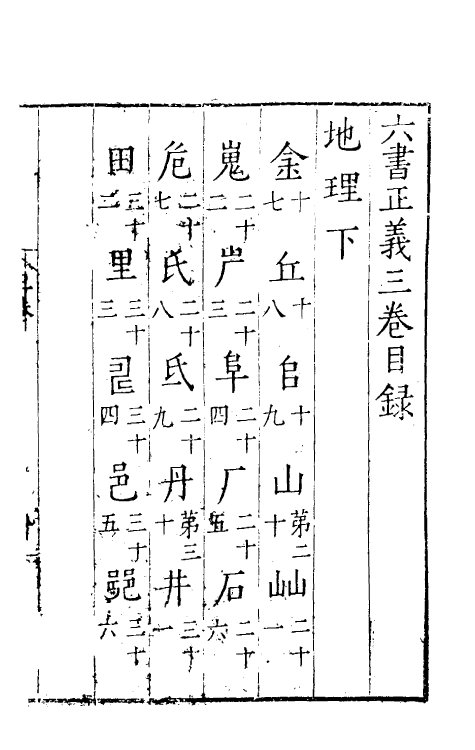 六書正義三卷目録
地理下
金 十七 丘 十八 𠂤 十九 山 第二十 屾 二十一
嵬 二十二 屵 二十三 阜 二十四 厂 二十五 石 二十六
危 二十七 氏 二十八 氐 二十九 丹 第三十 井 三十一
田 三十二 里 三十三 三十四 邑 三十五 𨛜 三十六